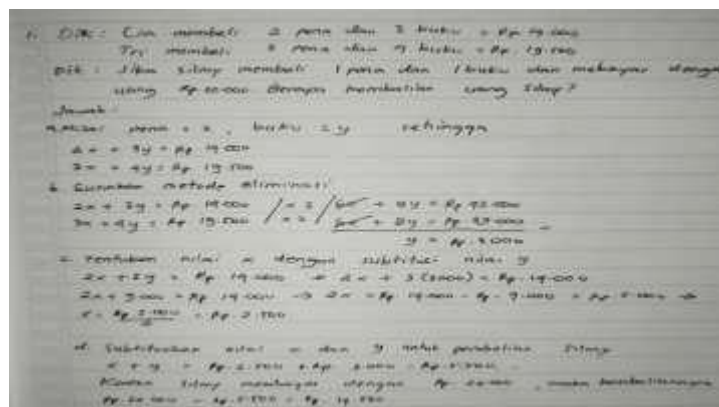 1. Dik : Cia membeli 2 pena dan 3 buku = Rp 14.000
Tri membeli 3 pena dan 4 buku = Rp. 19.500
Dit : Jika Silmy membeli 1 pena dan 1 buku dan membayar dengan
uang Rp 20.000 berapa kembalian uang Silmy?
Jawab :
a. Misal pena = x, buku = y sehingga
2x + 3y = Rp 14.000
3x + 4y = Rp 19.500
b. Gunakan metode eliminasi
2x + 3y = Rp 14.000 / × 3 / 6x + 9y = Rp 42.000
3x + 4y = Rp 19.500 / × 2 / 6x + 8y = Rp 39.000 -
y = Rp. 3.000
c. Tentukan nilai x dengan subtitusi nilai y
2x + 3y = Rp 14.000 → 2x + 3 (3000) = Rp. 14.000
2x + 9.000 = Rp 14.000 → 2x = Rp 14.000 - Rp. 9.000 = Rp 5.000 →
x = Rp 5.000/2 = Rp. 2.500
d. Subtitusikan nilai x dan y untuk Silmy
x + y = Rp. 2.500 + Rp. 3.000 = Rp. 5.500
Karena Silmy membayar dengan Rp 20.000, maka kembaliannya
Rp. 20.000 - Rp. 5.500 = Rp. 14.500